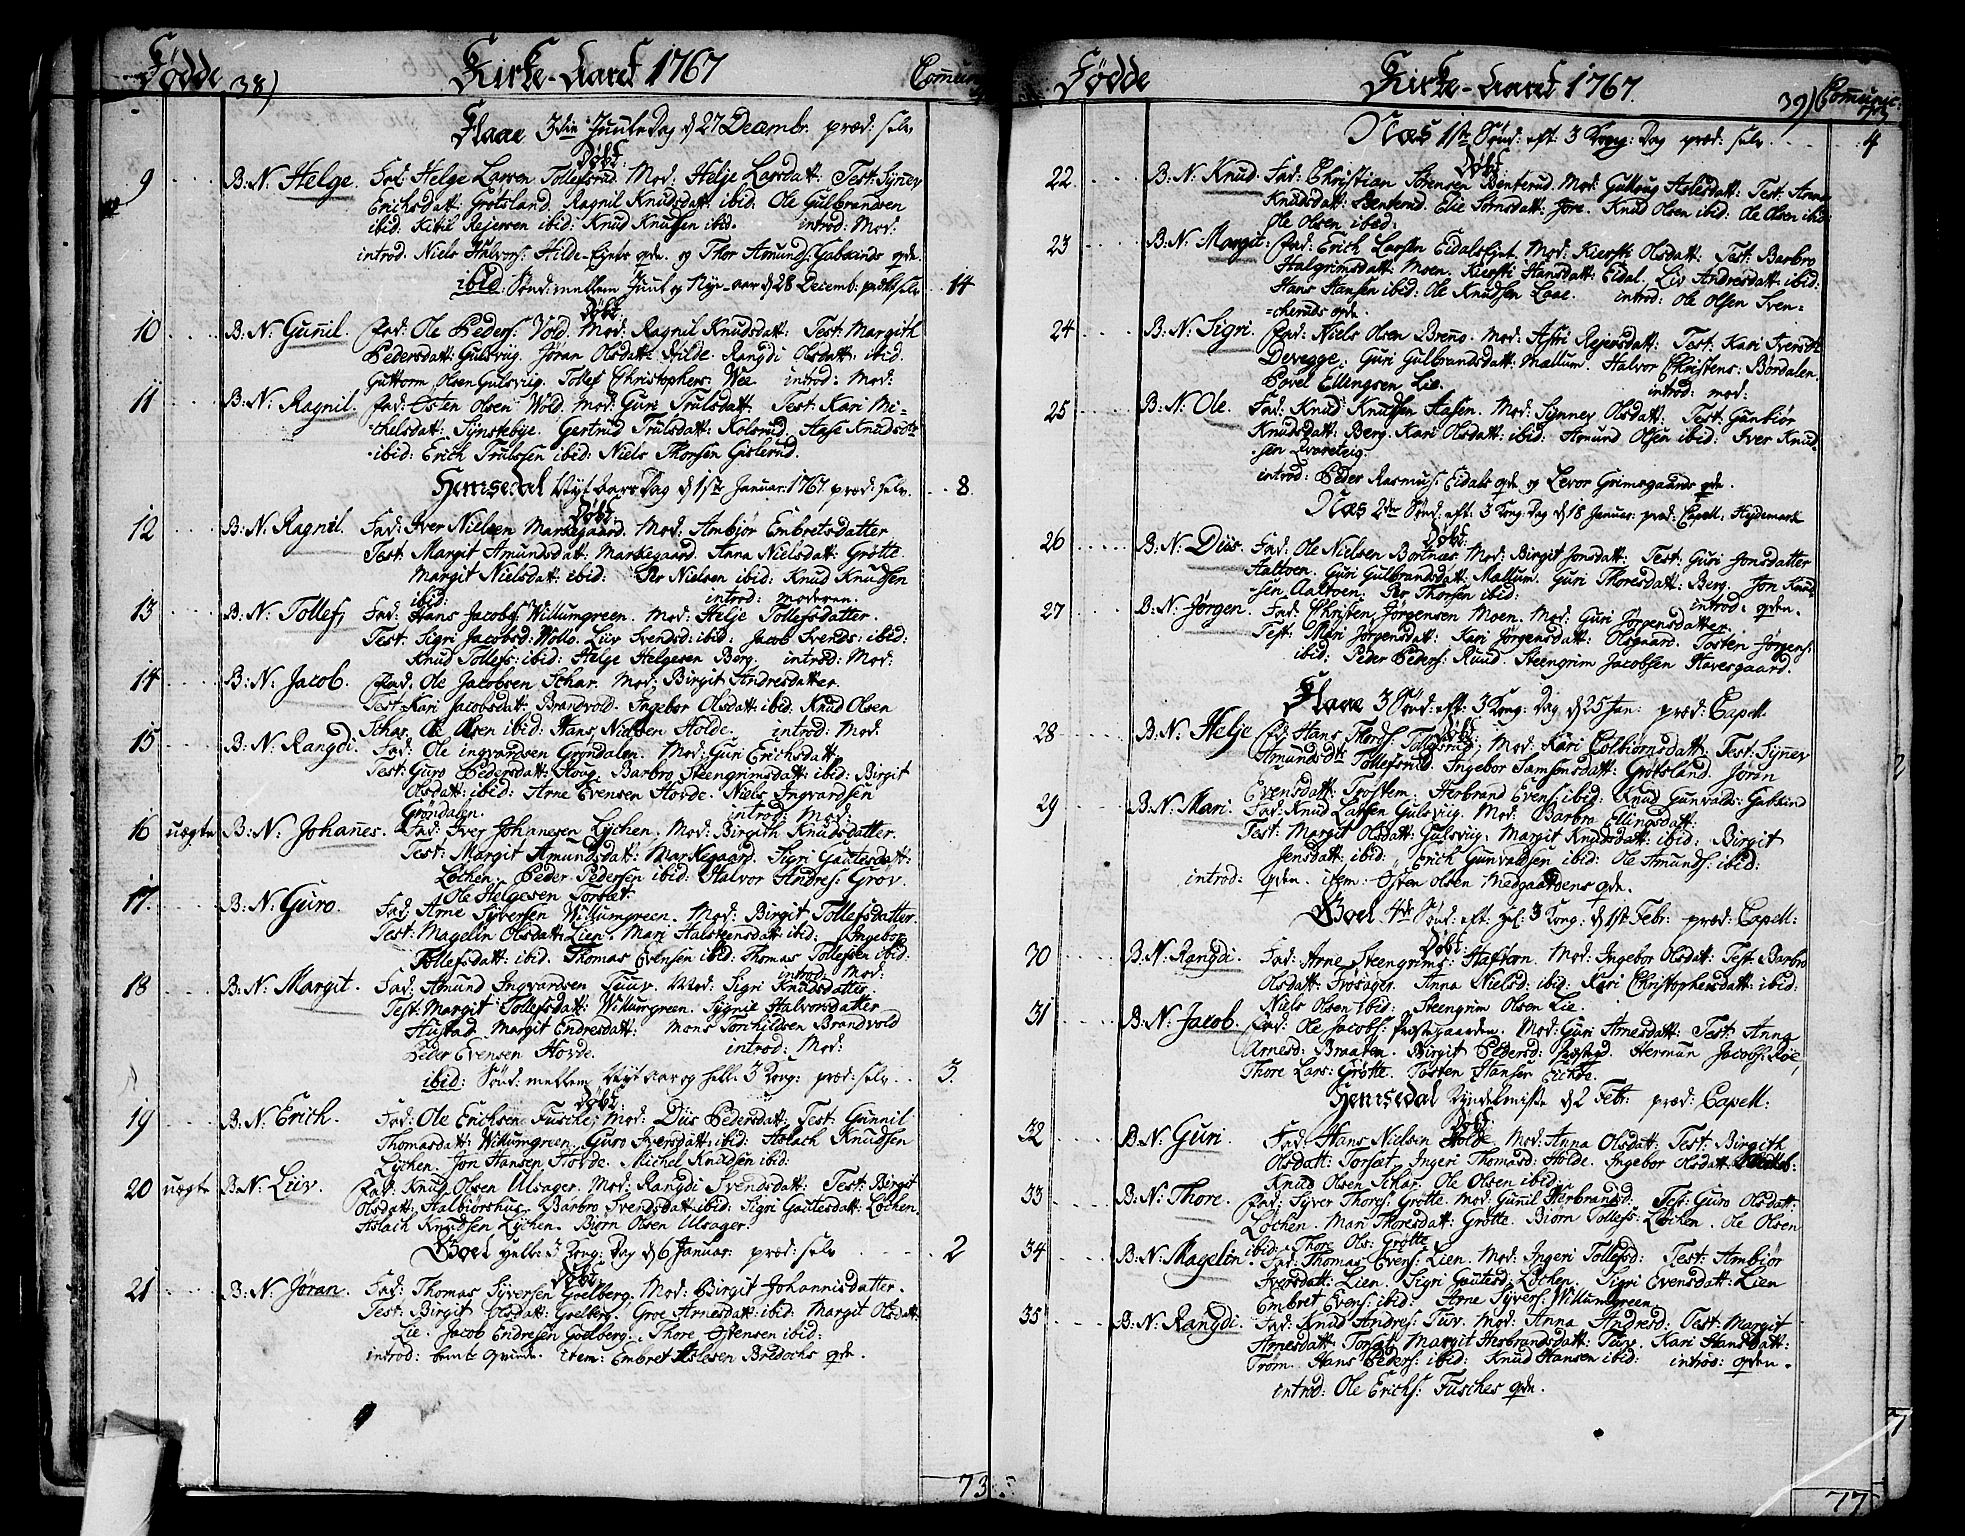 Fødde 38) Kirke-Aaret 1767 Comunic:
Flaae 3die Juule Dag d 27 Decembr. præd: selv
Døbt:
9 B: N. Helge. Fad: Helge Larsen Tollefsrud. Mod: Helje Larsdatt: Test: Synev
Erichsdatt: Grótsland. Ragnil Knudsdatt: ibid: Ole Gulbrandsen
ibid: Kittil Rejersen ibid: Knud Knudsen ibid. introd: Mod:
introd: Niels Halvors: Hilde-Ejets qde. og Thor Amunds: Gabsinds qde.
ibid: Sønd: mellem Juul og Nye-aar d 28 Decemb: præd: selv 14
Døbt
10 B: N. Gunil. Fad: Ole Peders: Vold. Mod: Ragnil Knudsdatt: Test: Margith
Pedersdatt: Gulsviig. Jøran Olsdatt: Hilde. Rangdi Olsdatt: ibid.
Guttorm Olsen Gulsviig. Tollef Christophers: Wee. introd: Mod:
11 B: N: Ragnil. Fad: Østen Olsen Vold. Mod: Guri Trulsdatt: Test: Kari Mi=
chelsdatt: Synstebye. Gertrud Trulsdatt: Kolsrud. Aase Knudsdtr
ibid: Erich Trulssen ibid: Niels Thorsen Gislerud.
Hemsedal Nyt Aars Dag d 1ste Januar: 1767. præd: selv. 8.
Døbt
12 B: N: Ragnil. Fad: Iver Nielsen Markegaard. Mod: Ambiør Embretsdatter
Test: Margit Amundsdat: Markegaard. Anna Nielsdatt: Grøtte
Margit Nielsdatt: ibid: Per Nielsen ibid: Knud Knudsen
ibid: introd: moderen.
13 B: N: Tollef, Fad: Hans Jacobs: Willumgreen. Mod: Helje Tollefsdatter.
Test: Sigri Jacobsd: Wøllo. Liiv Svends: ibid: Jacob Svends: ibid:
Knud Tollefs: ibid: Helge Helgesen Berg. introd: Mod:
14 B: N: Jacob. Fad: Ole Jacobsen Schar. Mod: Birgit Andresdatter.
Test: Kari Jacobsdat: Brandvold. Ingebor Olsdatt: ibid: Knud Olsen
Schar. Ole Olsen ibid: Hans Nielsen Holde. introd: Mod:
15 B: N: Rangdi. Fad: Ole ingvardsen Grøndalen. Mod: Gun Erichsdatt:
Test: Guro Pedersdatt: Houg. Barbro Steengrimsdatt: ibid: Birgit
Olsdatt: ibid: Arne Evensen Hovde. Niels Ingvardsen
Grøndalen. introd: Mod:
16 uægte B: N: Johannes. Fad: Iver Johannesen Lychen. Mod: Birgith Knudsdatter.
Test: Margit Amundsdatt: Markegaard. Sigri Gautesdatt:
Løchen. Peder Pedersen ibid: Halvor Andres: Grøv.
Ole Helgesen Torset
17. B: N: Guro. Fad: Arne Syversen Willumgreen. Mod: Birgit Tollefsdatter.
Test: Magelin Olsdatt: Lien. Mari Halsteensdatt: ibid: Ingebor
Tollefsdatt: ibid. Thomas Evensen ibid: Thomas Tollefsen ibid:
introd: Mod:
18 B: N: Margit. Fad: Amund Ingvardsen Tuuv. Mod: Sigri Knudsdatter.
Test: Margit Tollefsdatt: Willumgreen. Sygnie Halvorsdatter
Hustad. Margit Endresdatt: Mons Torchildsen Brandvold
Peder Evensen Hovde. introd: Mod:
ibid: Sønd: mellem Nyt Aar og hell: 3 Kong: præd: selv 3.
Døbt
19 B: N: Erich. Fad: Ole Erichsen Fusche, Mod: Diis Pedersdatt: Test: Gunnil
Thomasdatt: Willumgreen, Guro Iversdatt: ibid: Aslach Knudsen
Lychen. Jon Hansen Hovde. Michel Knudsen ibid:
20 uægte B: N: Liiv. Fad: Knud Olsen Ulsager. Mod: Rangdi Svendsdatt: Test: Birgit
Olsdatt: Halbiørshus. Barbro Svendsdatt: ibid: Sigri Gautesdatt: Løchen.
Aslach Knudsen Lychen. Biørn Olsen Ulsager.
Goel hell: 3 Kong: Dag d 6 Januar: præd: selv 2
Døbt
21 B: N: Jøran. Fad: Thomas Syversen Goelberg. Mod: Birgit Johannisdatter.
Test: Birgit Olsdatt: Goelberg. Groe Arnesdatt: ibid: Margit Olsdatt:
Lie. Jacob Endresen Goelberg. Thore Østensen ibid:
introd: qvinde. item: Embret Aslesen Bredochs qde.
73
Fødde Kirke-Aaret 1767. 39) Comunic:
Næs 1ste Sønd: eft: 3 Kong: Dag præd: selv. 4
Døbt
22 B: N: Knud. Fad: Christian Sørensen Benterud. Mod: Guttoug Aslesdatt: Test: Anna
Knudsdatt: Benterud. Elie Sørnsdatt: Jore. Knud Olsen ibid: Ole Olsen ibid:
Ole Olsen ibid:
23 B: N: Margit: Fad: Erich Larsen Eidals Ejet. Mod: Kiersti Olsdatt: Test: Barbro
Halgrimsdatt: Moen. Kiersti Hansdatt: Eidal, Liv Andresdatt: ibid:
Hans Hansen ibid: Ole Knudsen Laae. introd: Ole Olsen Sven=
=cheruds qde.
24 B: N: Sigri. Fad: Niels Olsen Breno. Mod: Astri Rejersdatt: Test: Kari Iversdtr
Devegge. Guri Gulbrandsdatt: Mællum. Halvor Christens: Børdalen.
Povel Ellingsen Lie. introd: mod:
25 B: N: Ole. Fad: Knud Knudsen Aasen. Mod: Synnev Olsdatt: Test: Gunbiør
Knudsdatt: Berg. Kari Olsdatt: ibid: Amund Olsen ibid: Iver Knud=
sen Evareteig.
introd: Peder Rasmus: Eidals qde og Levor Grimsgaards qde.
Næs 2den Sønd: eft: 3 Kong: Dag d 18 Januar: præd: Capell. Heydemark
Døbt:
26 B: N: Diis. Fad: Ole Nielsen Bortnæs. Mod: Birgit Jonsdatt: Test: Guri Jonsdatter
Haltoen. Guri Gulbrandsdatt: Mallum. Guri Thoresdatt: Berg. Jon Knud=
sen Aaltoen. Per Thorsen ibid: introd: qvden.
27 B: N: Jørgen. Fad: Christen Jørgensen Moen. Mod: Guri Jørgensdatter.
Test: Mari Jørgensdatt: Kari Jørgensdatt: Olsgaard. Tosten Jørgens:
ibid: Peder Peders: Ruud. Steengrim Jacobsen Havesgaard.
Flaae 3 Sønd: eft: 3 Kong: Dag d 25 Jan: præd: Capell.
Døbt:
28 B: N: Helje Fad: Hans Thords: Tollefsrud, Mod: Kari Colbiørnsdatt: Test: Synev
Amundsdtr Tollefsrud. Ingebor Samsonsdatt: Grøtsland. Jøran
Evensdatt: Trostem. Herbrand Evens: ibid: Knud Gunvalds: Gabsind
29 B: N: Mari. Fad: Knud Larsen Gulsviig. Mod: Barbro Ellingsdatt.
Test: Margit Olsdatt: Gulsviig. Margit Knudsdatt: ibid: Birgit
Jensdatt: ibid. Erich Gunvaldsen ibid: Ole Amunds: ibid:
introd: qvden. item: Østen Olsen Medgaardens qde.
Goel 4de Sønd: eft: hel: 3 Kong: d 1ste Febr: præd: Capell:
Døbt:
30 B: N: Rangdi. Fad: Arne Steengrims: Haftorn. Mod: Ingebor Olsdat: Test: Barbro
Olsdatt: Trøsager. Anna Nielsd: ibid: Kari Christophersdatt: ibid:
Niels Olsen ibid: Steengrim Olsen Lie.
31 B: N: Jacob. Fad: Ole Jacobs: Præstegaarden. Mod: Guri Arnesdatt: Test: Anna
Arnesd: Braaten. Birgit Pedersd: Herman Jacobs: Røe,
Thore Lars: Grøtte. Tosten Hansen Eichle.
Hemsedal Kyndelmisse d 2 Febr: præd: Capell:
Døbt
32 B: N: Guri Fad: Hans Nielsen Holde. Mod: Anna Olsdatt: Test: Birgith
Olsdatt: Torsæt. Ingeri Thomasd: Holde. Ingebor Olsdatt:
Knud Olsen Schar. Ole Olsen ibid:
33 B: N: Thore. Fad: Syver Thores: Grøtte. Mod: Gunnil Herbrandsd: Test: Guro Olsdatt:
Løchen. Mari Thoresdatt: Grøtte. Biørn Tollefs: Løchen. Ole Olsen
ibid: Thore Ols: Grøtte
34 B: N: Magelin. Fad: Thomas Evens: Lien. Mod: Ingeri Tollefsd: Test: Ambiør
Iversdatt: Lien. Sigri Gautesd: Løchen. Sigri Evensdatt: Lien
Embret Evens: ibid: Arne Syvers: Willumgreen.
35 B: N: Rangdi. Fad: Knud Andres: Tuv. Mod: Anna Andresd: Test: Margit
Arnesdatt: Torset. Margit Herbrandsdatt: Tuv. Kari Hansdatt:
Trøm. Hans Peders: ibid: Knud Hansen ibid: introd: qvden.
introd: Ole Erichs: Fusches qde.
77